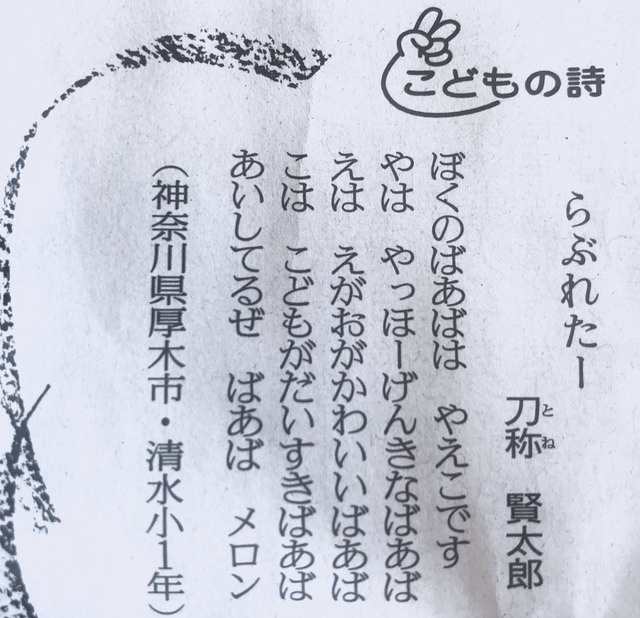 こどもの詩
らぶれたー
刀称 賢太郎
とね
ぼくのばあばは やえこです
やは やっほーげんきなばあば
えは えがおがかわいいばあば
こは こどもがだいすきばあば
あいしてるぜ ばあば メロン
（神奈川県厚木市・清水小1年）